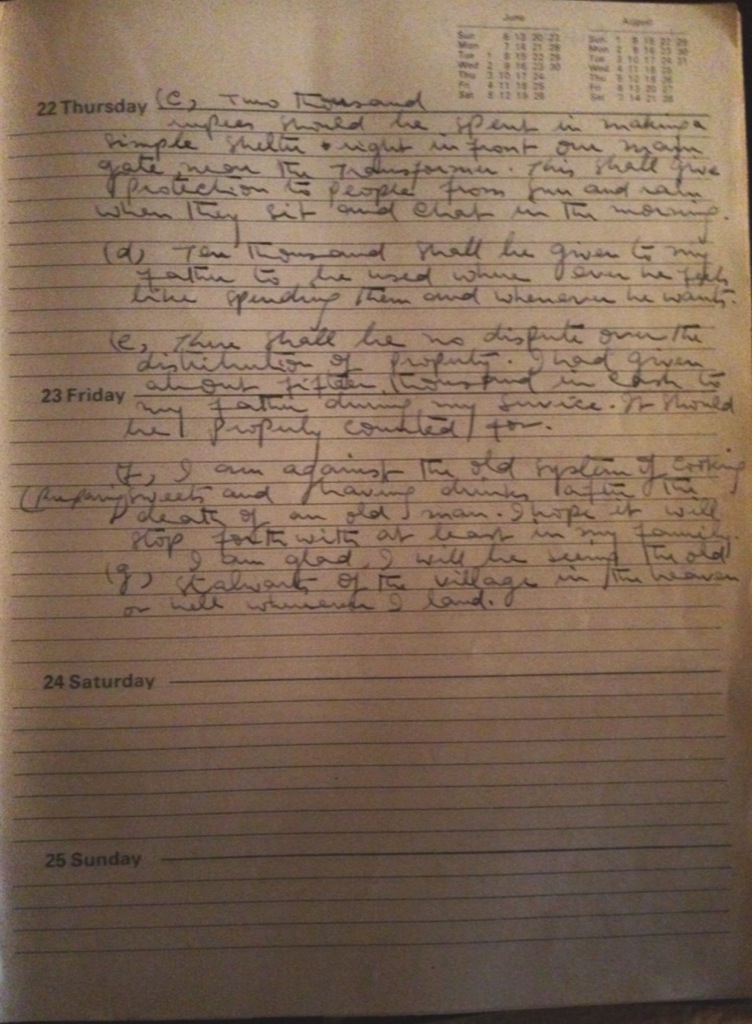 June
Sun 6 13 20 27
Mon 7 14 21 28
Tue 1 8 15 22 29
Wed 2 9 16 23 30
Thu 3 10 17 24
Fri 4 11 18 25
Sat 5 12 19 26
August
Sun 1 8 15 22 29
Mon 2 9 16 23 30
Tue 3 10 17 24 31
Wed 4 11 18 25
Thu 5 12 19 26
Fri 6 13 20 27
Sat 7 14 21 28
22 Thursday (c) Two Thousand
rupees should be spent in making a
simple shelter right in front our main
gate near the Transformer. This shall give
protection to people from sun and rain
when they sit and chat in the morning.
(d) Ten thousand shall be given to my
father to be used where ever he feels
like spending them and whenever he wants.
(e) There shall be no dispute over the
distribution of property. I had given
about fifteen thousand in cash to
23 Friday
my father during my service. It should
be properly counted for.
f, I am against the old system of cooking
(preparing sweets and having drinks after the
death of an old man. I hope it will
stop forthwith at least in my family.
(g) I am glad, I will be seeing the old
stalwarts of the village in the heaven
or hell wherever I land.
24 Saturday
25 Sunday